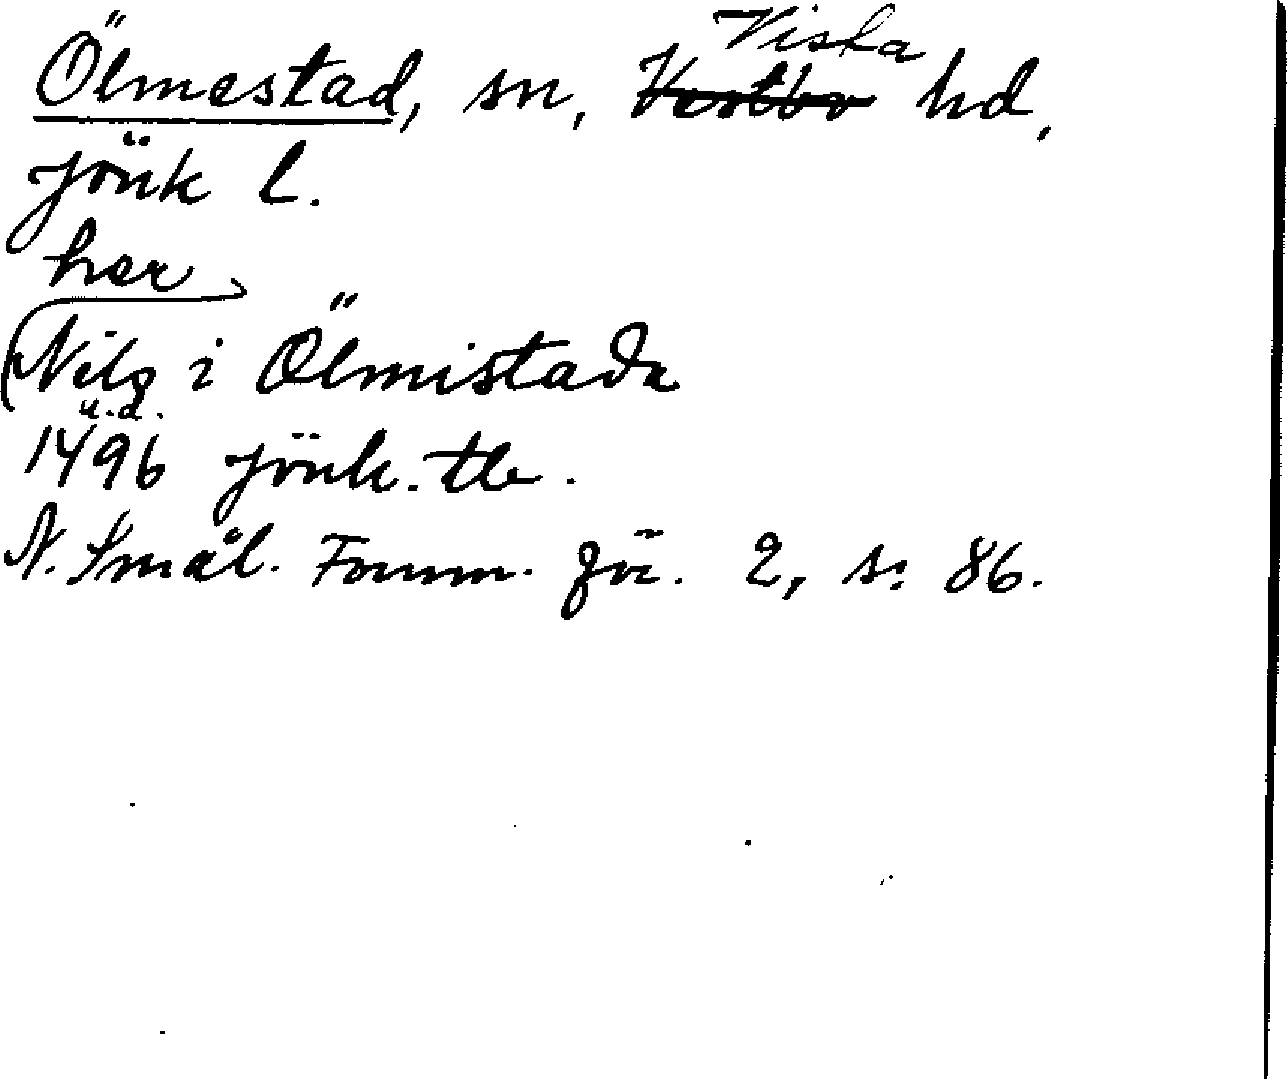 Ölmestad, sn, Vista hd,
Jönk l.
her
Nils i Ölmistada
u.d.
1496 Jönk. tb.
N. Smål. Fornm.för. 2, s. 86.